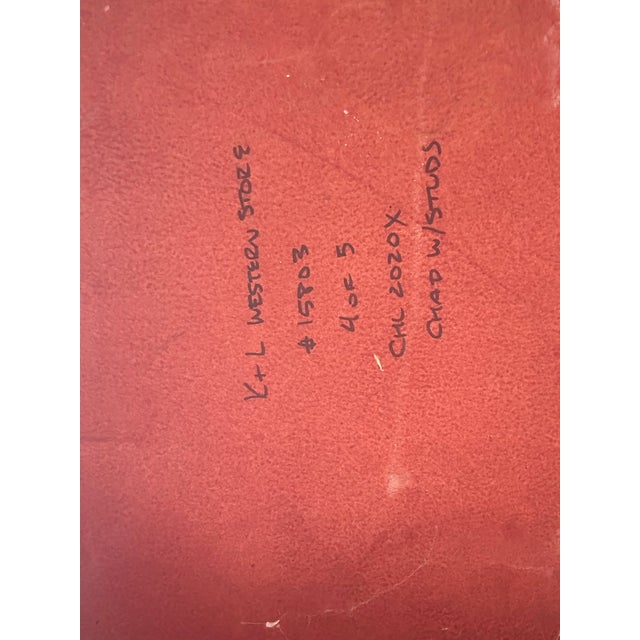 K+L WESTERN STORE
#15803
4 OF 5
CHL 2020X
CHAD W/STUDS